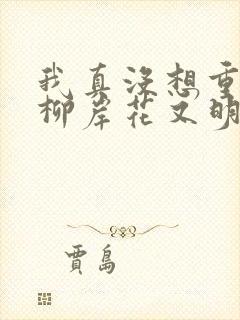 我真没想重
柳岸花又明
賈島